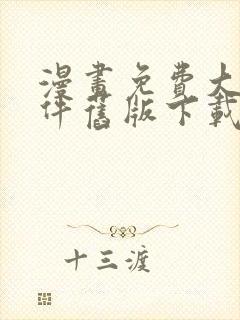 漫畫免費大
件舊版下載
十三渡